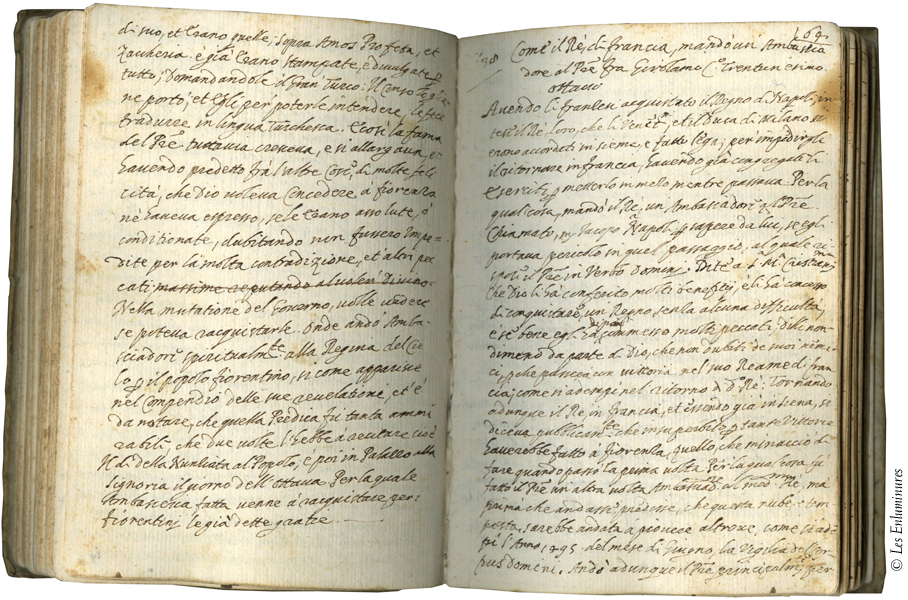 di suo, et erano quelle, sopra Amos Profeta, et
Zaccheria e già erano stampate, e divulgate p
tutto; Domandandole il Gran Turco. Il Consolo gli
ne portò; et Egli per poterle intendere, le fece
tradurre in lingua Turchesca. Et così la fama
del Pre tuttavia cresceva, e si allargava, et
havendo predetto fra l'altre Cose, di molte feli
cità, che Dio voleva Concedere à fiorenza
ne haveva espresso, se le erano assolute, ò
conditionate, dubitando non fussero Impe=
dite per la molta contradizione, et altri pec
cati massime reputando al Divino.
Nella mutatione del Governo, volle vedere
se poteva racquistarle. Onde andò Amba=
sciadore spiritualmte. alla Regina del Cie
lo p il popolo fiorentino, si come apparisce
nel Compendio delle sue revelationi, et è
da notare, che quella Predica fu tanto ammi
rabili, che due volte l'hebbe à recitare cioè
Il dì della Nuntiata al Popolo, e poi in Palazzo alla
Signoria il giorno dell'ottava. Per la quale
Ambasceria fatta venne à racquistare per i
fiorentini le già dette gratie.
64
Come il Rè, di francia, mandò un Ambascia
dore al Pre fra Girolamo Co. Trentunesimo
ottavo
Avendo li franzesi acquistato il Regno di Napoli, in
tese il Rè, loro, che li Venti, et il Duca di Milano si
erono accordati insieme, e fatto lega, per impedirgli
il ritornare in francia, havendo già congregati li
Eserciti, p metterlo in mezo mentre passava. Per la
qual cosa, mandò il Rè, un Ambasciadore al Pre
Chiamato, Jacopo Napoli p sapere da lui, se egli
portava pericolo in quel passaggio, al quale ri
spose il Pre in Verbo Domini. Dite à S. M. Cristianma
che Dio li hà conferito molti benefizij, e li hà concesso
di conquistare, un Regno senza alcuna difficultà,
e se bene egli hà di poi commesso molti peccati. Dilli non
dimeno da parte di Dio, che non dubiti de suoi nimi
ci, pche passerà con vittoria nel suo Reame di fran
cia; come si adempì nel ritorno di do Rè. Tornando
adunque il Rè in francia, et essendo già in siena, si
diceva publicamte. che insuperbito p tante Vittorie
haverebbe fatto à fiorenza, quello, che minacciò di
fare quando passò la prima volta. Per la qual cosa, fù
fatto il Pre un altra volta Ambasciade. al medmo. Rè, ma
prima che andasse predisse, che questa nube
sarebbe andata a piovere altrove, come
fù l'Anno 1495. del mese di Giugno, la Vigilia del Cor
pus domini. Andò adunque il Pre principalmte. per
© Les Enluminures